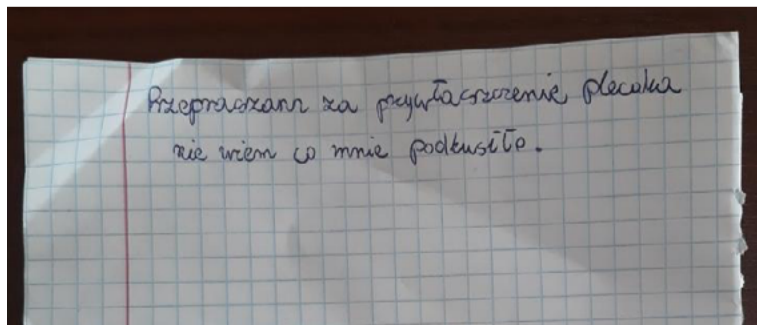 Przepraszam za przywłaszczenie plecaka
nie wiem co mnie podkusiło.